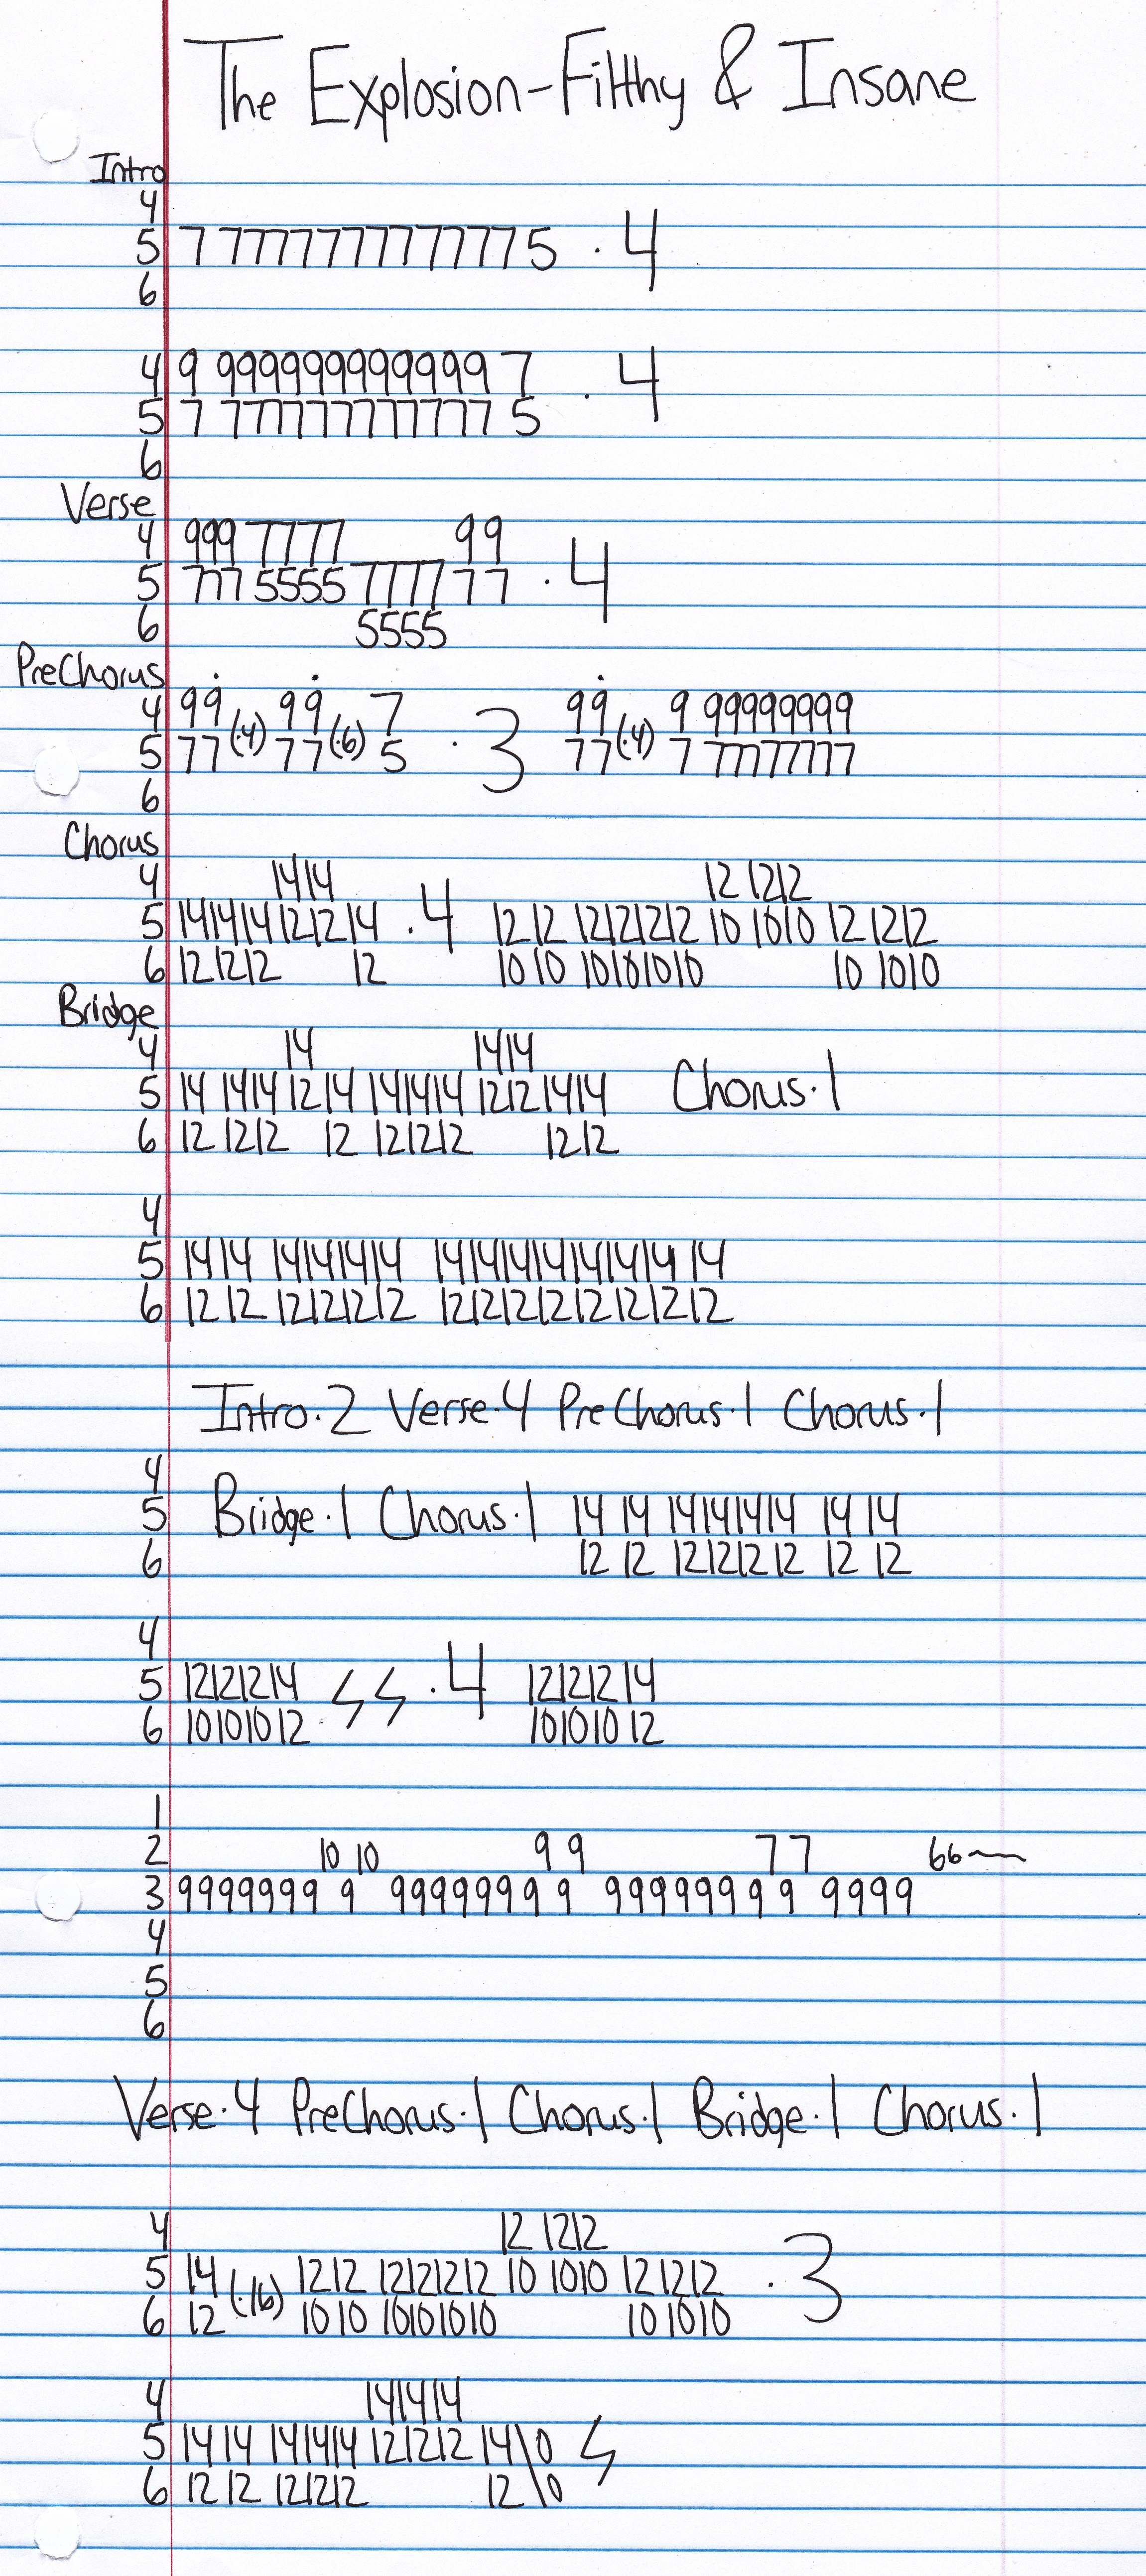 The Explosion-Filthy & Insane
Intro
4
5 7 77777777777775 · 4
6
4 9 9999999999999 7
5 7 7777777777777 5 · 4
6
Verse
4 999 7777 99
5 777 5555 7777 77 · 4
6 5555
PreChorus
4 99̇ 99̇ 7 99̇ 9 999999999
5 77(·4) 77(·6) 5 · 3 77(·4) 7 777777777
6
Chorus
4 1414 12 1212
5 141414121214 · 4 1212 12121212 10 1010 12 1212
6 121212 12 1010 10101010 10 1010
Bridge
4 14 1414
5 14 1414 12 14 141414 1212 1414 Chorus·1
6 12 1212 12 121212 1212
4
5 1414 14141414 1414141414141414 14
6 1212 12121212 121212121212121212
Intro·2 Verse·4 PreChorus·1 Chorus·1
4
5 Bridge·1 Chorus·1 14 14 14141414 14 14
6 12 12 12121212 12 12
4
5 12121214 · 4 12121214
6 10101012 10101012
1
2 10 10 99 77 66
3 9999999 9 99999999 9 99999999 9 9999
4
5
6
Verse·4 PreChorus·1 Chorus·1 Bridge·1 Chorus·1
4 12 1212
5 14 (·16) 1212 12121212 10 1010 12 1212 · 3
6 12 1010 10101010 10 1010
4 141414
5 1414 141414 121212 14\0
6 1212 121212 12\0